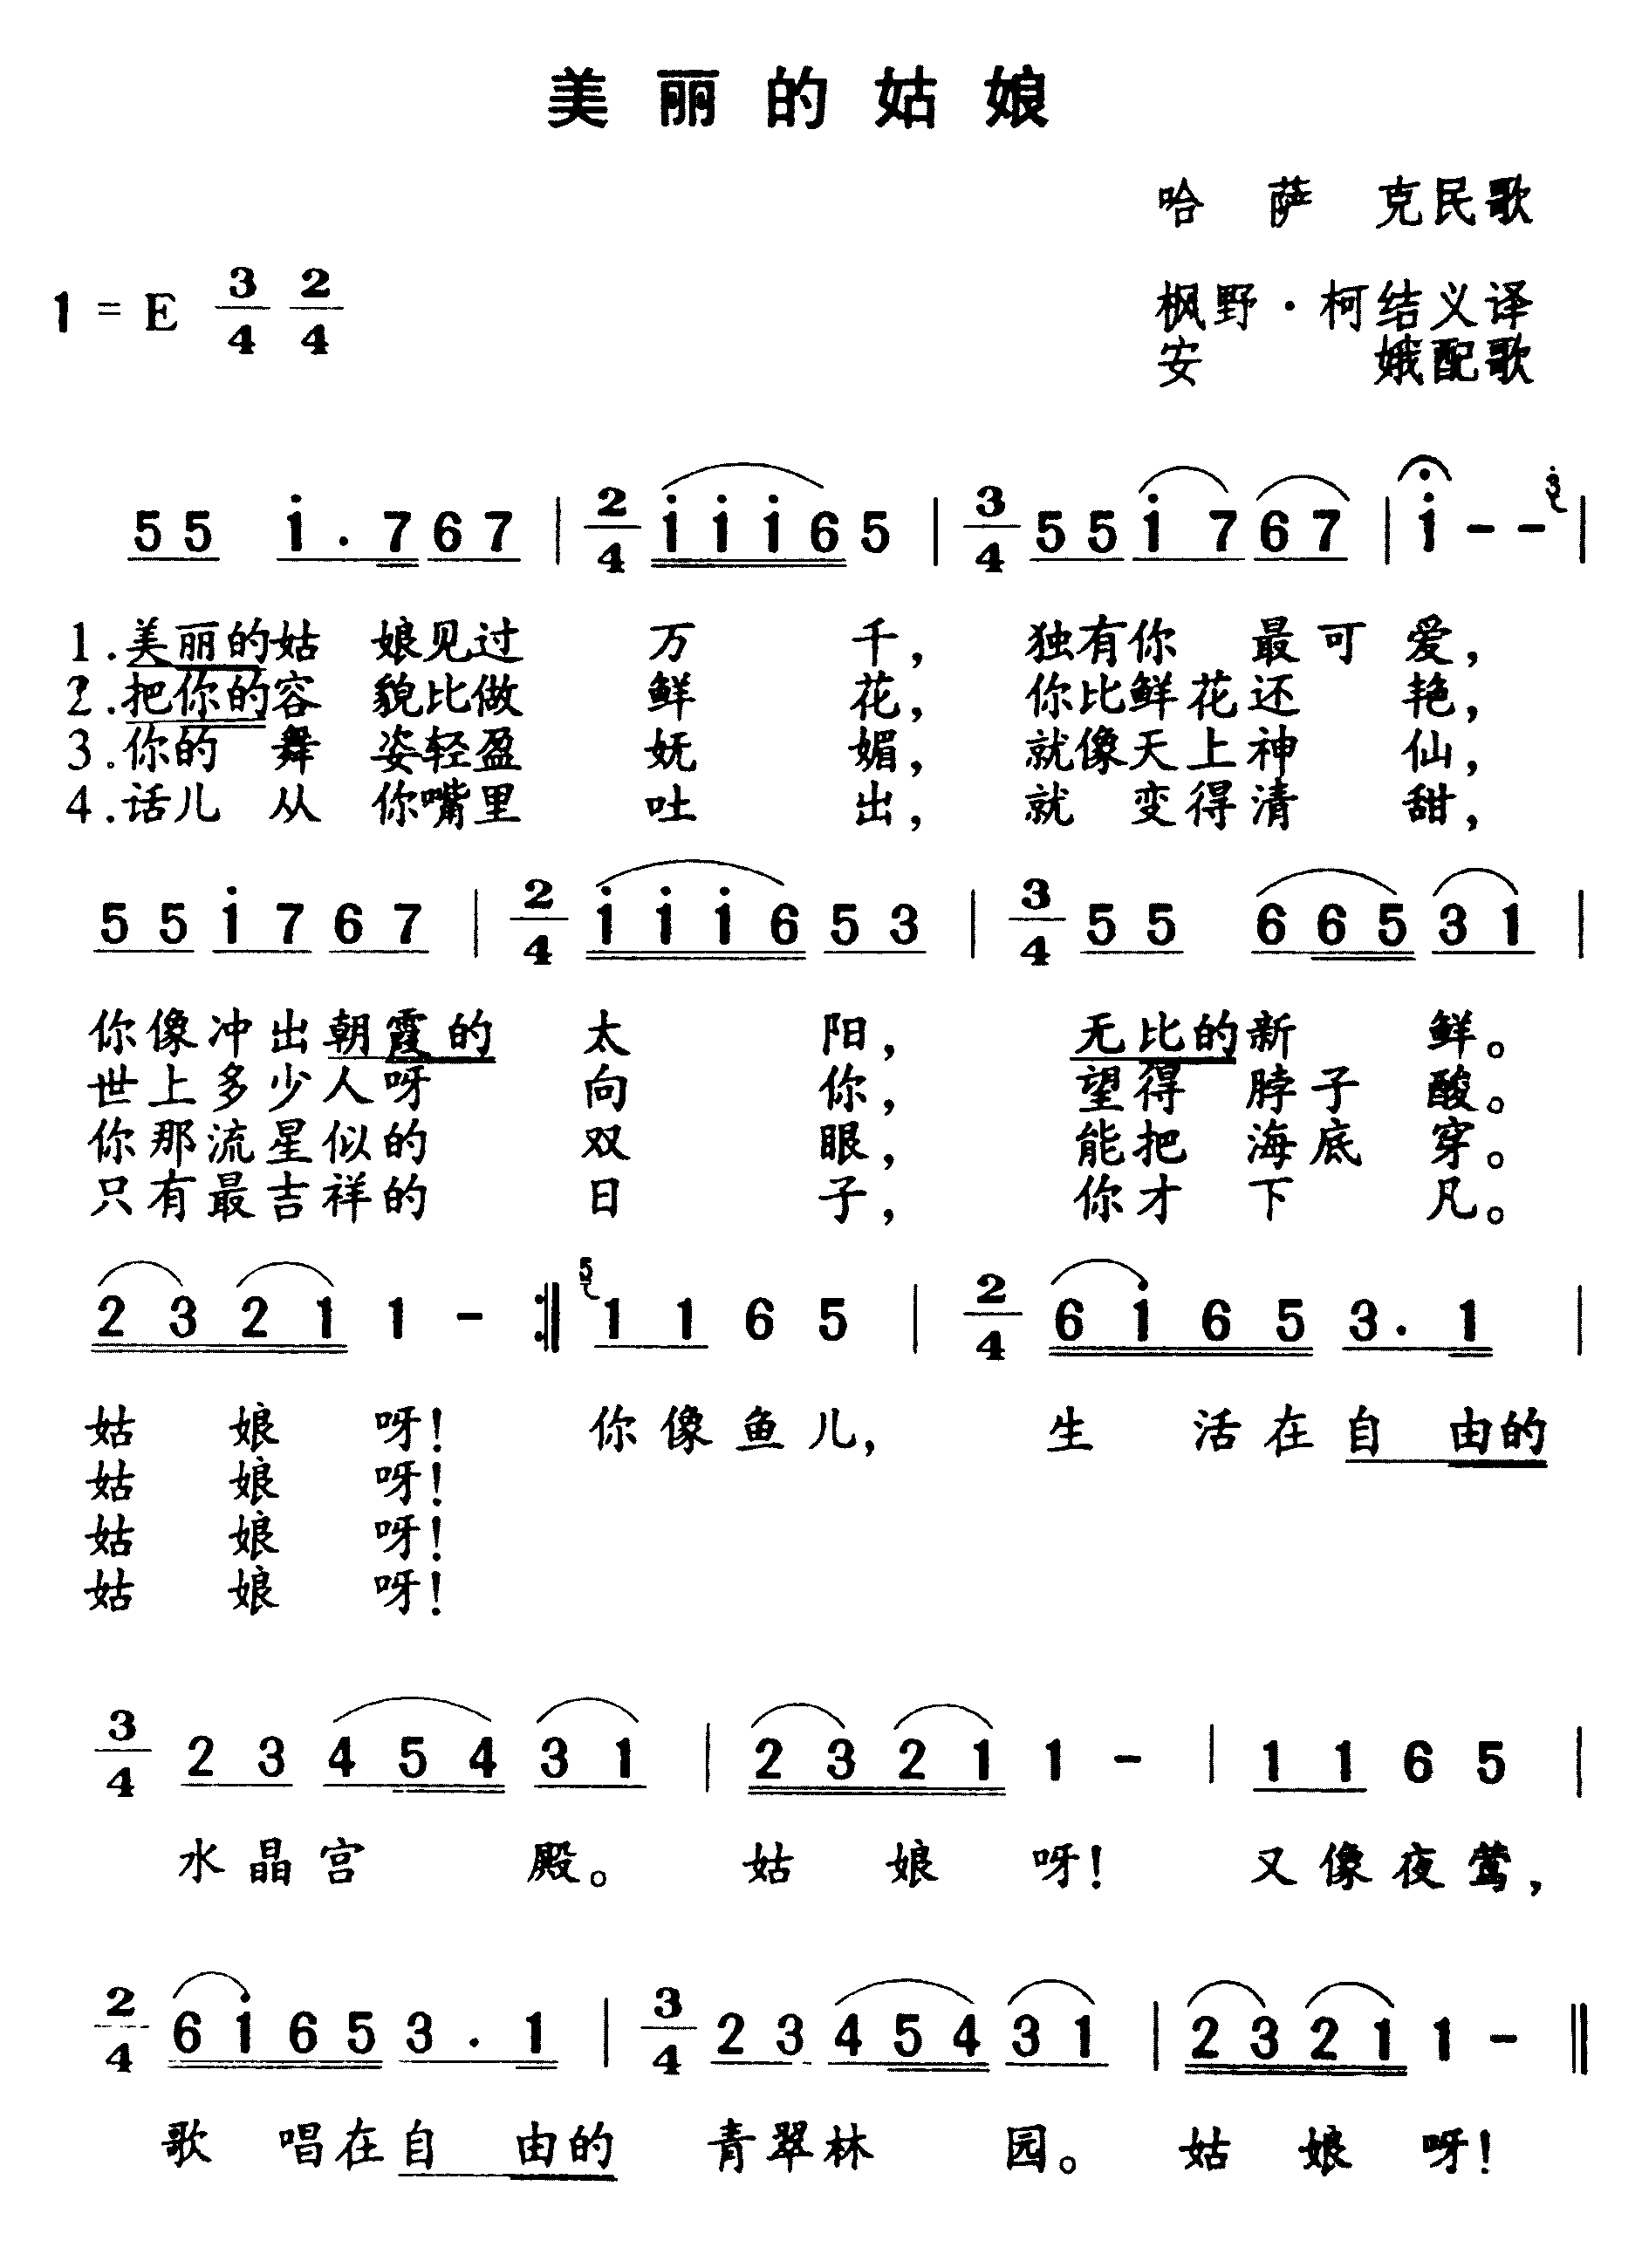 美丽的姑娘
哈萨克民歌
1 = E 3/4 2/4
枫野·柯结义译
安娥配歌
5 5 i . 7 6 7 | 2/4 i i i 6 5 | 3/4 5 5 i 7 6 7 | i - - 3 |
1.美丽的姑 娘见过 万 千, 独有你 最可爱,
2.把你的容 貌比做 鲜 花, 你比鲜花还 艳,
3.你的 舞 姿轻盈 妩 媚, 就像天上神 仙,
4.话儿 从 你嘴里 吐 出, 就 变得清 甜,
5 5 i 7 6 7 | 2/4 i i i 6 5 3 | 3/4 5 5 6 6 5 3 1 |
你像冲出朝霞的 太 阳, 无比的新 鲜。
世上多少人呀 向 你, 望得 脖子 酸。
你那流星似的 双 眼, 能把 海底 穿。
只有最吉祥的 日 子, 你才 下 凡。
2 3 2 1 1 - :‖ 5 1 1 6 5 | 2/4 6 i 6 5 3 . 1 |
姑 娘 呀! 你像鱼儿, 生 活在自 由的
姑 娘 呀!
姑 娘 呀!
姑 娘 呀!
3/4 2 3 4 5 4 3 1 | 2 3 2 1 1 - | 1 1 6 5 |
水晶宫 殿。 姑 娘 呀! 又像夜莺,
2/4 6 i 6 5 3 . 1 | 3/4 2 3 4 5 4 3 1 | 2 3 2 1 1 - ‖
歌 唱在自 由的 青翠林 园。 姑 娘 呀!